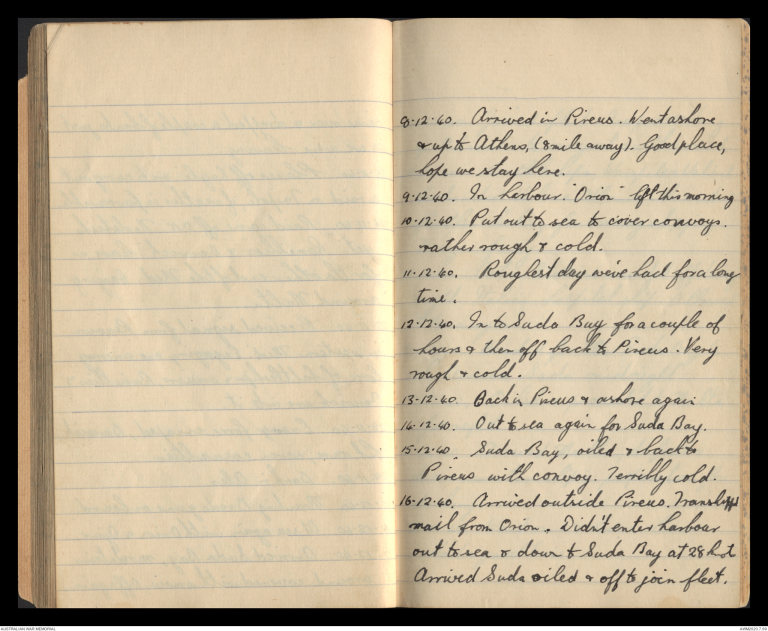 8.12.40. Arrived in Pireus. Went ashore
& up to Athens, (8 mile away). Good place,
hope we stay here.
9.12.40. In harbour. "Orion" left this morning
10.12.40. Put out to sea to cover convoys.
rather rough & cold.
11.12.40. Roughest day we've had for a long
time.
12.12.40. In to Suda Bay for a couple of
hours & then off back to Pireus. Very
rough & cold.
13.12.40 Back in Pireus & ashore again
14.12.40. Out to sea again for Suda Bay.
15.12.40. Suda Bay, oiled & back to
Pireus with convoy. Terribly cold.
16.12.40. Arrived outside Pireus.
mail from Orion. Didn't enter harbour
out to sea & down to Suda Bay at 28 knots
Arrived Suda oiled & off to join fleet.
AUSTRALIAN WAR MEMORIAL